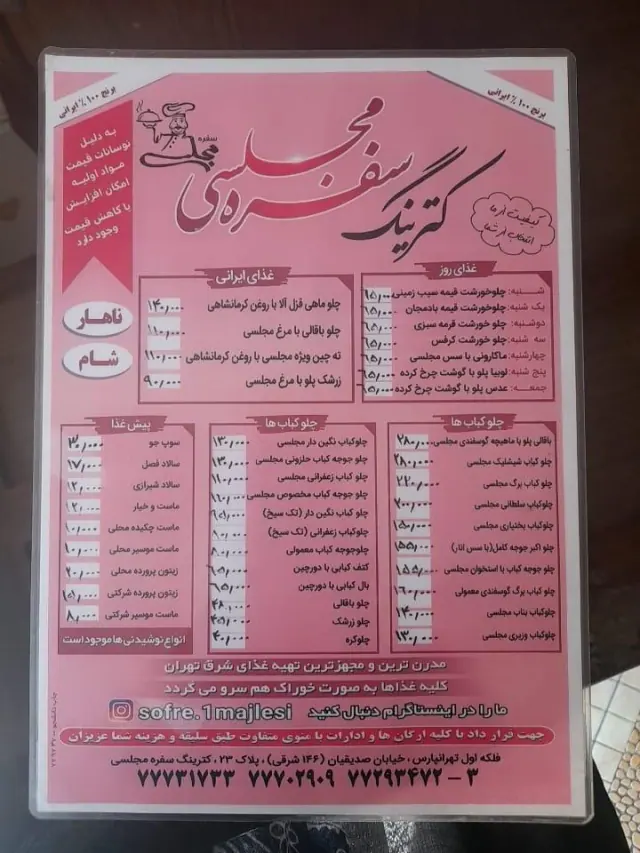 برنج ۱۰۰٪ ایرانی
برنج ۱۰۰٪ ایرانی
به دلیل
نوسانات قیمت
مواد اولیه
امکان افزایش
یا کاهش قیمت
وجود دارد
سفره
مجلسی
کترینگ سفره مجلسی
کیفیت از ما
انتخاب از شما
ناهار
شام
غذای روز
شنبه: چلوخورشت قیمه سیب زمینی ۶۵,۰۰۰
یک شنبه: چلوخورشت قیمه بادمجان ۶۵,۰۰۰
دوشنبه: چلو خورشت قرمه سبزی ۶۵,۰۰۰
سه شنبه: چلو خورشت کرفس ۶۵,۰۰۰
چهارشنبه: ماکارونی با سس مجلسی ۶۵,۰۰۰
پنج شنبه: لوبیا پلو با گوشت چرخ کرده ۶۵,۰۰۰
جمعه: عدس پلو با گوشت چرخ کرده ۶۵,۰۰۰
غذای ایرانی
چلو ماهی قزل آلا با روغن کرمانشاهی ۱۴۰,۰۰۰
چلو باقالی با مرغ مجلسی ۱۱۰,۰۰۰
ته چین ویژه مجلسی با روغن کرمانشاهی ۱۱۰,۰۰۰
زرشک پلو با مرغ مجلسی ۹۰,۰۰۰
چلو کباب ها
باقالی پلو با ماهیچه گوسفندی مجلسی ۲۸۰,۰۰۰
چلو کباب شیشلیک مجلسی ۲۸۰,۰۰۰
چلو کباب برگ مجلسی ۲۲۰,۰۰۰
چلوکباب سلطانی مجلسی ۲۰۰,۰۰۰
چلوکباب بختیاری مجلسی ۱۵۰,۰۰۰
چلو اکبر جوجه کامل(با سس انار) ۱۵۵,۰۰۰
چلو جوجه کباب با استخوان مجلسی ۱۵۵,۰۰۰
چلو کباب برگ گوسفندی معمولی ۱۶۰,۰۰۰
چلوکباب بناب مجلسی ۱۴۰,۰۰۰
چلوکباب وزیری مجلسی ۱۳۰,۰۰۰
چلو کباب ها
چلوکباب نگین دار مجلسی ۱۳۰,۰۰۰
چلو جوجه کباب حلزونی مجلسی ۱۳۰,۰۰۰
چلوکباب زعفرانی مجلسی ۱۱۰,۰۰۰
چلو جوجه کباب مخصوص مجلسی
چلوکباب نگین دار (تک سیخ)
چلوکباب زعفرانی (تک سیخ)
چلوجوجه کباب معمولی ۸۰,۰۰۰
کتف کبابی با دورچین ۶۵,۰۰۰
بال کبابی با دورچین ۶۵,۰۰۰
چلو باقالی ۴۸,۰۰۰
چلو زرشک ۴۵,۰۰۰
چلوکره ۴۰,۰۰۰
پیش غذا
سوپ جو ۳۰,۰۰۰
سالاد فصل ۱۷,۰۰۰
سالاد شیرازی ۱۲,۰۰۰
ماست و خیار ۱۲,۰۰۰
ماست چکیده محلی ۱۰,۰۰۰
ماست موسیر محلی ۱۰,۰۰۰
زیتون پرورده محلی ۲۰,۰۰۰
زیتون پرورده شرکتی ۱۵,۰۰۰
ماست موسیر شرکتی ۸,۰۰۰
انواع نوشیدنی ها موجود است
مدرن ترین و مجهزترین تهیه غذای شرق تهران
کلیه غذاها به صورت خوراک هم سرو می گردد
ما را در اینستاگرام دنبال کنید sofre.1majlesi
جهت قرار داد با کلیه ارگان ها و ادارات با منوی متفاوت طبق سلیقه و هزینه شما عزیزان
فلکه اول تهرانپارس، خیابان صدیقیان (۱۴۶ شرقی)، پلاک ۲۳، کترینگ سفره مجلسی
۷۷۷۳۱۷۳۳ ۷۷۷۰۲۹۰۹ ۷۷۲۹۳۴۷۲ – ۳